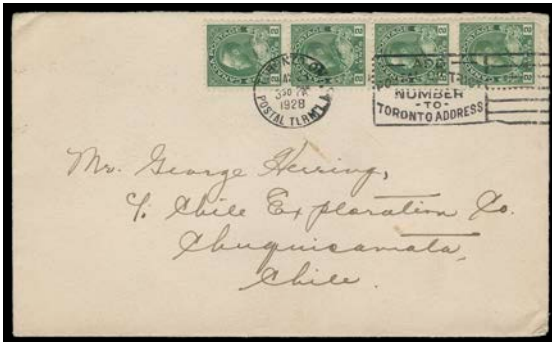 CANADA POSTAGE
2 2
TORONTO
3 30 PM
1928
POSTAL TERM.
ADD
NUMBER
-TO-
TORONTO ADDRESS
Mr. George Herring,
c/o Chile Exploration Co.
Chuquicamata,
Chile.